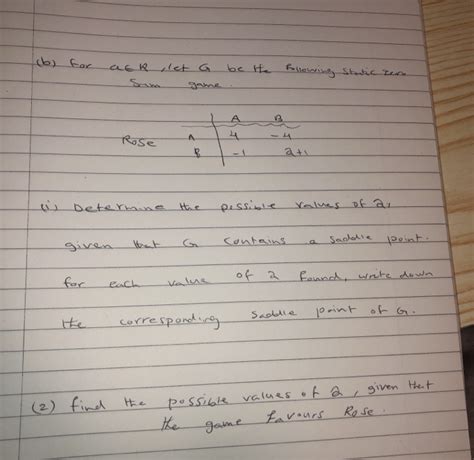 (b) For a∈R, let G be the following static zero
Sum game.
A B
Rose A 4 -4
B -1 a+1
(i) Determine the possible values of a,
given that G contains a saddle point.
for each value of a found, write down
the corresponding saddle point of G.
(2) find the possible values of a, given that
the game favours Rose.